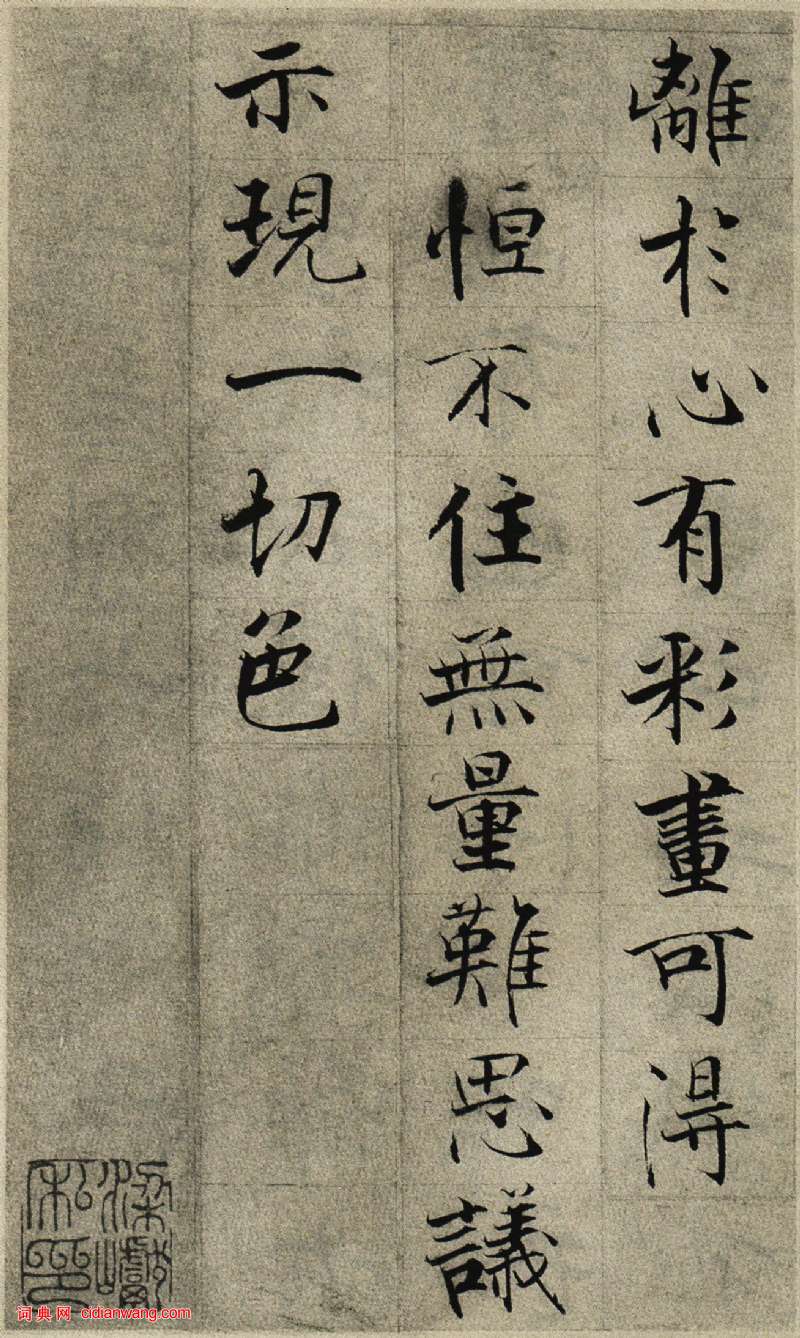 離於心有彩畫可得
恒不住無量難思議
示現一切色
词典网 cidianwang.com